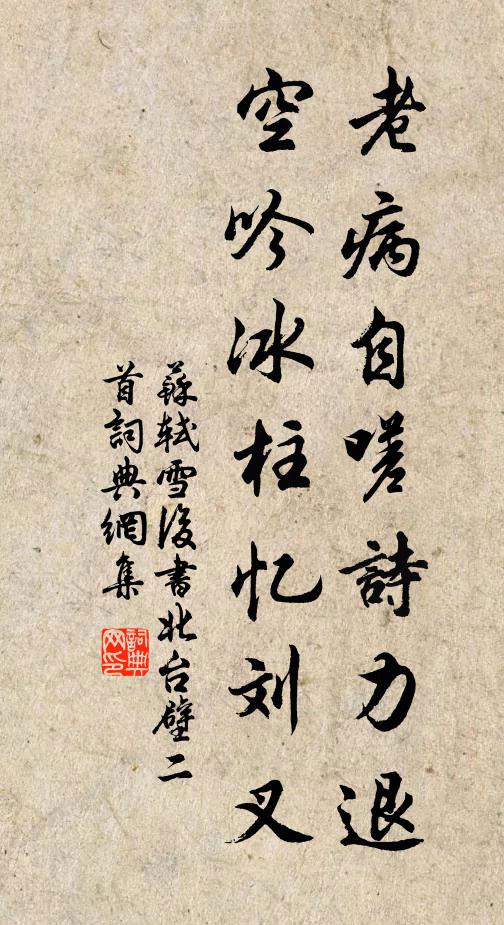 老病自嗟詩力退
空吟冰柱忆刘叉
蘇軾雪後書北台壁二
首詞典網集
詞典网印